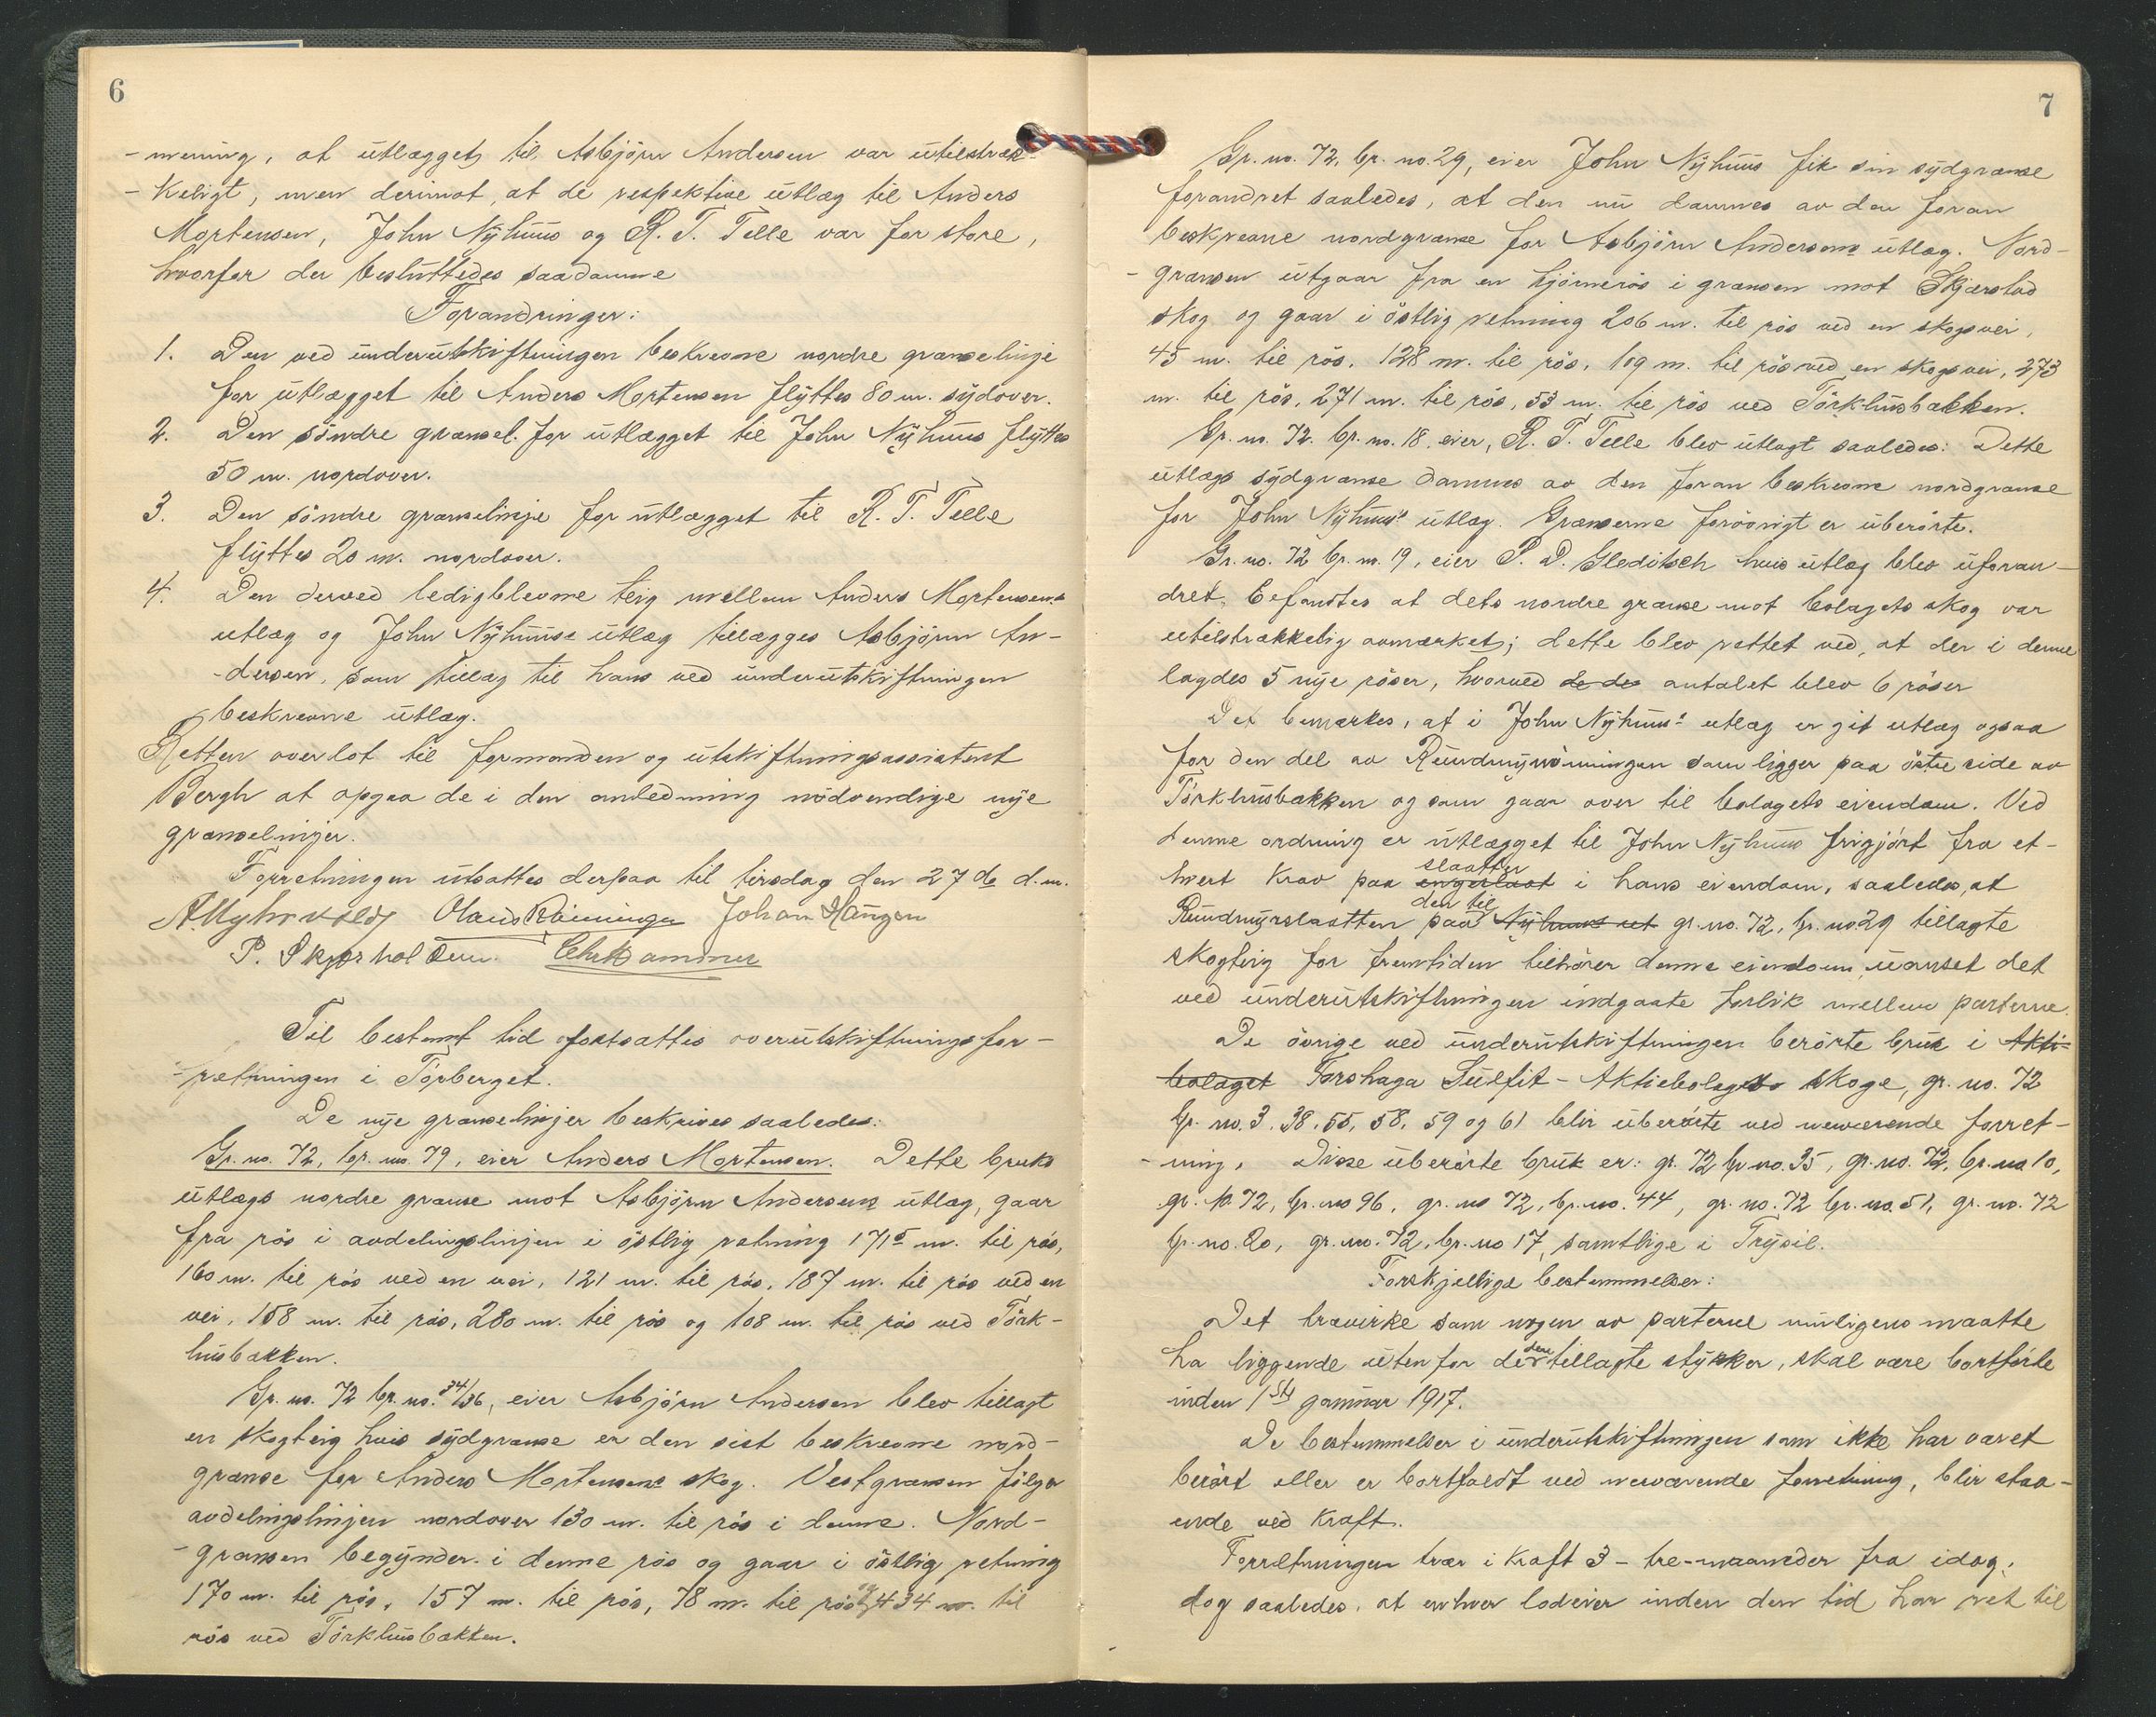 6
- mening, at utlægget til Asbjörn Andersen var utilstræk-
- keligt, men derimot, at de respektive utlæg til Anders
Mortensen, John Nyhuus og R. T. Telle var for store,
hvorfor der besluttedes saadanne
Forandringer:
1. Den ved underutskiftningen beskrevne nordre grænselinje
for utlægget til Anders Mortensen flyttes 80 m. sydover.
2. Den söndre grænsel. for utlægget til John Nyhuus flyttes
50 m. nordover.
3. Den söndre grænselinje for utlægget til R. T. Telle
flyttes 20 m. nordover.
4. Den derved ledigblevne teig mellem Anders Mortensens
utlæg og John Nyhuuse utlæg tillægges Asbjörn An-
- dersen, som tillæg til hans ved underutskiftningen
beskrevne utlæg.
Retten overlot til formanden og utskiftningsassistent
Bergh at opgaa de i den anledning nödvendige nye
grænselinjer.
Forretningen utsattes derpaa til tirsdag den 27de d.m.
A. Myhrvold Olaus Rönningen Johan Haugen
P. Skjærholden. Chr. Kammen
Til bestemt tid fortsattes overutskiftningsfor-
- retningen i Törberget.
De nye grænselinjer beskrives saaledes:
Gr. no. 72, br. no. 79, eier Anders Mortensen. Dette bruks
utlægs nordre grænse mot Asbjörn Andersens utlæg, gaar
fra rös i avdelingslinjen i östlig retning 171⁵ m. til rös,
160 m. til rös ved en vei, 121 m. til rös, 187 m. til rös ved en
vei, 158 m. til rös, 280 m. til rös og 108 m. til rös ved Törk-
husbækken.
Gr. no. 72 br. no. 34/36, eier Asbjörn Andersen blev tillagt
en skogteig hvis sydgrænse er den sist beskrevne nord-
grænse for Anders Mortensens skog. Vestgrænsen fölger
avdelingslinjen nordover 130 m. til rös i denne. Nord-
- grænsen begynder i denne rös og gaar i östlig retning
170 m. til rös, 157 m. til rös, 78 m. til rös og 434 m. til
rös ved Törkhusbækken.
7
Gr. no. 72, br. no. 29, eier John Nyhuus fik sin sydgrænse
forandret saaledes, at den nu dannes av den foran
beskrevne nordgrænse for Asbjörn Andersens utlæg. Nord-
- grænsen utgaar fra en hjörnerös i grænsen mot Skjærslad
skog og gaar i östlig retning 206 m. til rös ved en skogsvei,
45 m. til rös, 128 m. til rös, 109 m. til rös ved en skogsvei, 273
m. til rös, 271 m. til rös, 53 m. til rös ved Törkhusbækken.
Gr. no. 72. br. no. 18, eier, R. T. Telle blev utlagt saaledes: Dette
utlægs sydgrænse dannes av den foran beskrevne nordgrænse
for John Nyhuus' utlæg. Grænserne forövrigt er uberörte.
Gr. no. 72 br. no. 19, eier P. D. Gleditsch hvis utlæg blev uforan-
dret, befandtes at dets nordre grænse mot bolagets skog var
utilstrækkelig avmærket; dette blev rettet ved, at der i denne
lagdes 5 nye röser, hvorved de des antalet blev 6 röser
Det bemærkes, at i John Nyhuus' utlæg er git utlæg ogsaa
for den del av Rundmyrvönningen som ligger paa östre side av
Törkhusbækken og som gaar over til bolagets eiendom. Ved
denne ordning er utlægget til John Nyhuus frigjört fra et-
slaatter
hvert krav paa engeslaat i hans eiendom, saaledes, at
den til
Rundmyrslaatten paa Nyhuus ut gr. no. 72, br. no 29 tillagte
skogteig for fremtiden tilhörer denne eiendom uanset det
ved underutskiftningen indgaate forlik mellem parterne.
De övrige ved underutskiftningen berörte bruk i Akti-
bolaget Forshaga Sulfit-Aktiebolags skoge, gr. no. 72
br. no. 3, 38, 55, 58, 59 og 61 blir uberörte ved nærværende forret-
- ning. Disse uberörte bruk er: gr. 72 br. no. 35, gr. no. 72, br. no 10,
gr. no. 72, br. no 96, gr. no 72, br. no. 44, gr. no. 72 br. no. 51, gr. no. 72
br. no. 20, gr. no. 72, br. no 17, samtlige i Trysil.
Forskjellige bestemmelser:
Det trævirke som nogen av parterne muligens maatte
dem
ha liggende uten for de tillagte stykker, skal være bortförte
inden 1ste januar 1917.
De bestemmelser i underutskiftningen som ikke har været
berört eller er bortfaldt ved nærværende forretning, blir staa-
ende ved kraft.
Forretningen trær i kraft 3 - tre - maaneder fra idag;
dog saaledes, at enhver lodeier inden den tid har ret til